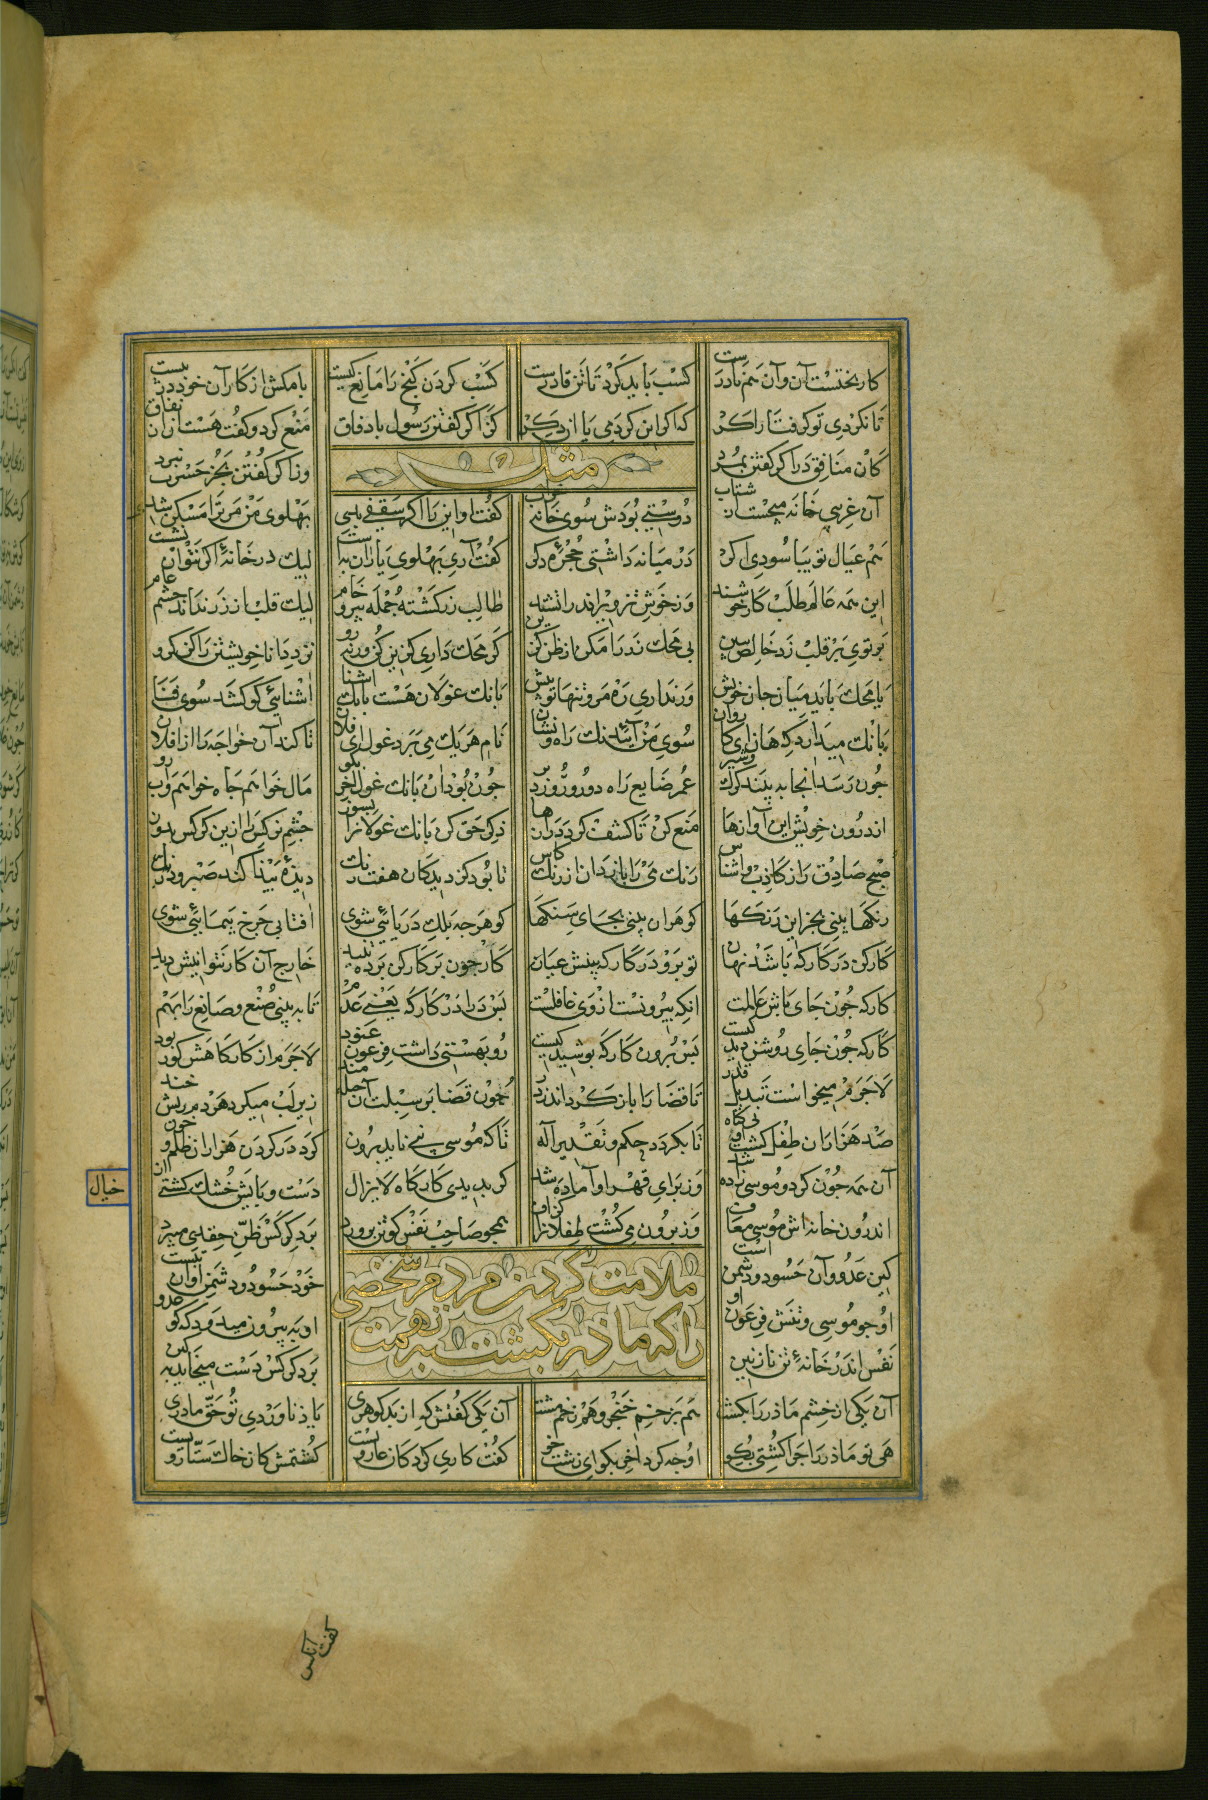 کار بختست آن و آن هم نادرست کسب باید کرد تا تن قادرست کسب کردن کنج را مانع کیست با مکش از کار آن خود در بیست
تا نکردی تو کرفتار اکر که اکر این کردمی یا آن دکر کز اکر کفتن رسول با وفاق منع کرد و کفت هست از آن نفاق
کان منافق در اکر کفتن بمرد وز اکر کفتن بجز حسرت نبرد
مثل
آن غریبی خانه میجست از شتاب دوستی بردش سوی خانه خراب کفت او این را اکر سقفی بدی بهلوی من مر ترا مسکن شدی
هم عیال تو بیاسودی اکر در میانه داشتی حجره دکر کفت آری بهلوی یاران به است لیک در خانه اکر نتوان نشست
این همه عالم طلب کار خوشند وز خوش تزویر اندر آتشند طالب زر کشته جمله بیر و خام لیک قلب از زر نداند جشم عام
برتوی بر قلب زد خالص ببین بی محک زر را مکن از ظن کزین کر محک داری کزین کن ورنه رو نزد دانا خویشتن را کن کرو
یا محک باید میان جان خویش ور نداری ره مرو تنها تو بیش بانک غولان هست بانک آشنا آشنائی کو کشد سوی فنا
بانک میدارد که هان ای کاروان سوی من آئید نک راه و نشان نام هر یک می برد غول ای فلان تا کند آن خواجه را از افلان
جون رسد آنجا به بیند کرک و شیر عمر ضایع راه دور و روز دیر جون بود آن بانک غول آخر بکو مال خواهم جاه خواهم و آب رو
اندرون خویش این آوازها منع کن تا کشف کردد رازها ذکر حق کن بانک غولانرا بسوز جشم نرکس را ازین کرکس بدوز
صبح صادق را ز کاذب وا شناس رنک می را باز دان از رنک کاس تا بود کز دیدکان هفت رنک دیدهٔ بینا کند صبر و درنک
رنکها بینی بجز این رنکها کوهران بینی بجای سنکها کوهر جه بلک دریائی شوی آفتابی جرخ بیمائی شوی
کارکن در کارکه باشد نهان تو برو در کارکه بینش عیان کار جون بر کارکن برده تنید خارج آن کار نتوانیش دید
کارکه جون جای باش عاملست آنکه بیرونست از وی غافلست بس درا در کارکه یعنی عدم تا به بینی صنع و صانع را بهم
کارکه جون جای روشن دیدکیست بس برون کارکه بوشیدکیست رو بهستی داشت فرعون عنود لاجرم از کارکاهش کور بود
لاجرم میخواست تبدیل قدر تا قضا را باز کرداند ز در جون قضا بر سبلت آن حیله مند زیر لب میکرد هر دم ریش خند
صد هزاران طفل کشت او بی کناه تا بکردد حکم و تقدیر آله تا که موسی نبی ناید برون کرد در کردن هزاران ظلم و خون
آن همه خون کرد و موسی زاده شد وز برای قهر او آماده شد کر بدیدی کارکاه لایزال دست و بایش خشک کشتی ز
خیال
اندرون خانه اش موسی معاف وز برون می کشت طفلانرا کزاف همجو صاحب نفس کو تن برورد بر دکر کس ظن حقدی میبرد
کین عدو و آن حسود و دشمن است خود حسود و دشمن او آن تنست
او جو موسی و تنش فرعون او او به بیرون میدود که کو عدو
نفس اندر خانهٔ تن نازنین بر دکر کس دست میخاید به کین
ملامت کردن مردم شخصی
را که مادر بکشت بتهمت
آن یکی از خشم مادر را بکشت هم بزخم خنجر و هم زخم مشت آن یکی کفتش که از بد کوهری یاد ناوردی تو حق مادری
هی تو مادر را جرا کشتی بکو او جه کرد آخر بکو ای زشت خو کفت کاری کرد کان عار ویست کشتمش کان خاک ستار ویست
کفت آنکس